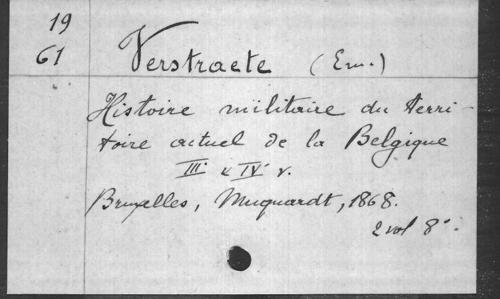 19
61
Verstraete (Em.)
Histoire militaire du terri-
toire actuel de la Belgique
III & IV v.
Bruxelles, Muquardt, 1868.
2 vol 8°.